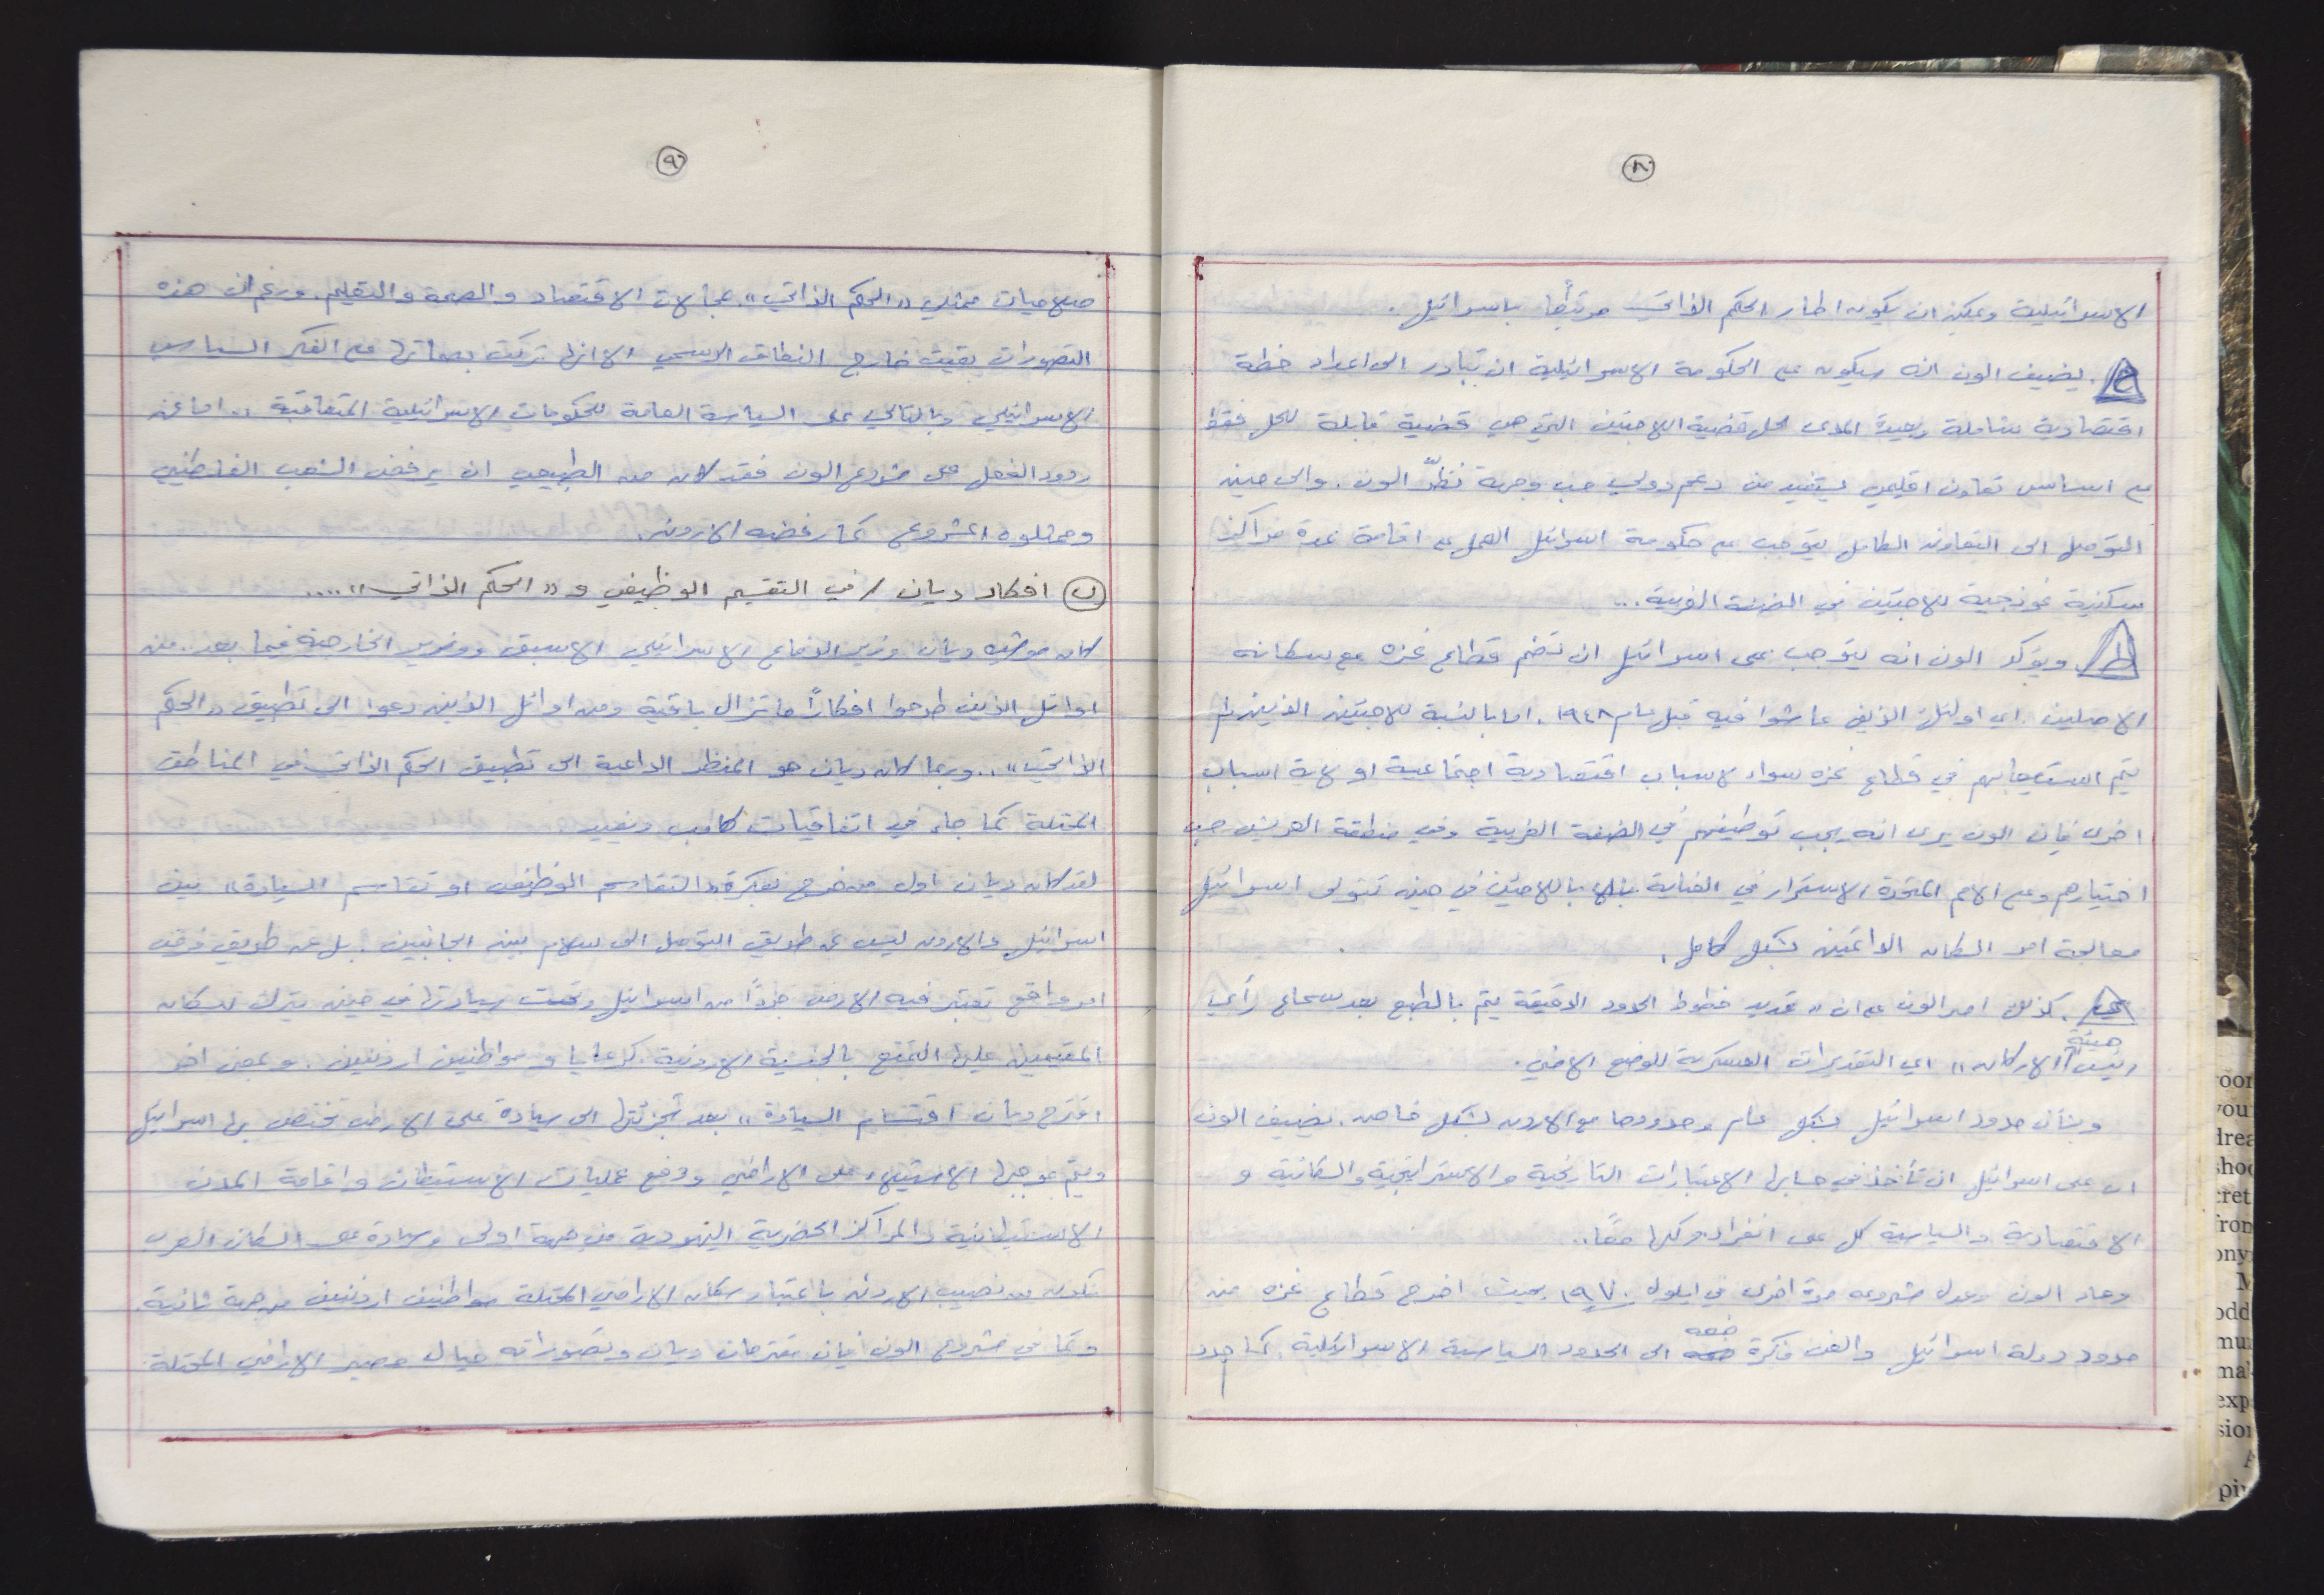 ٨
الاسرائيلية ويمكن ان يكون اطار الحكم الذاتي مرتبطًا باسرائيل.
ح. يضيف الون انه سيكون على الحكومة الاسرائيلية ان تبادر الى اعداد خطة
اقتصادية شاملة بعيدة المدى لحل قضية اللاجئين التي هي قضية قابلة للحل فقط
على اساس تعاون اقليمي يستفيد من دعم دولي حسب وجهة نظر الون. والى حين
التوصل الى التعاون الكامل يتوجب على حكومة اسرائيل العمل على اقامة عدة مراكز
سكنية نموذجية للاجئين في الضفة الغربية...
ط. ويؤكد الون انه يتوجب على اسرائيل ان تضم قطاع غزه مع سكانه
الاصليين. اي اولئك الذين عاشوا فيه قبل عام ١٩٤٨. اما بالنسبة للاجئين الذين لم
يتم استيعابهم في قطاع غزه سواء لاسباب اقتصادية اجتماعية او لاية اسباب
اخرى فإن الون يرى انه يجب توطينهم في الضفة الغربية وفي منطقة العريش حسب
اختيارهم وعلى الامم المتحدة الاستمرار في العناية باللاجئين في حين تتولى اسرائيل
معالجة امر السكان الدائمين بشكل كامل.
ي. كذلك اصر الون على ان "تحديد خطوط الحدود الدقيقة يتم بالطبع بعد سماع رأي
رئيس هيئة الاركان" اي التقديرات العسكرية للوضع الامني.
وبشأن حدود اسرائيل بشكل عام وحدودها مع الاردن بشكل خاص. يضيف الون
ان على اسرائيل ان تأخذ في حسابها الاعتبارات التاريخية والاستراتيجية والسكانية و
الاقتصادية والسياسية كل على انفراد وكلها معًا..
وعاد الون وعدل مشروعه مرة اخرى في ايلول ١٩٧٠ بحيث اخرج قطاع غزه من
حدود دولة اسرائيل والغى فكرة ضمه الى الحدود السياسية الاسرائيلية. كما حدد
٩
صلاحيات ممثلي "الحكم الذاتي". بمجالات الاقتصاد والصحة والتعليم. ورغم ان هذه
التصورات بقيت خارج النطاق الرسمي الا انها تركت بصماتها على الفكر السياسي
الاسرائيلي وبالتالي على السياسة العامة للحكومات الاسرائيلية المتعاقبة.. اما عن
ردود الفعل على مشروع الون فقد كان من الطبيعي ان يرفض الشعب الفلسطيني
وممثلوه المشروع كما رفضه الاردن.
ب افكار ديان / في التقسيم الوظيفي و "الحكم الذاتي"....
كان موشيه ديان وزير الدفاع الاسرائيلي الاسبق ووزير الخارجية فيما بعد.. من
اوائل الذين طرحوا افكارًا ما تزال باقية ومن اوائل الذين دعوا الى تطبيق "الحكم
الذاتي".. وربما كان ديان هو المنظر الداعية الى تطبيق الحكم الذاتي في المناطق
المحتلة كما جاء في اتفاقيات كامب ديفيد
لقد كان ديان اول من خرج بفكرة "التقاسم الوظيفي او تقاسم السيادة" بين
اسرائيل والاردن ليس عن طريق التوصل الى سلام بين الجانبين. بل عن طريق فرض
امر واقع تعتبر فيه الارض جزءًا من اسرائيل وتحت سيادتها في حين يترك للسكان
المقيمين عليها التمتع بالجنسية الاردنية. كرعايا ومواطنين اردنيين. وبمعنى اخر
اقترح ديان اقتسام السيادة" بعد تجزئتها الى سيادة على الارض تختص بها اسرائيل
ويتم بموجبها الاستيلاء على الاراضي ودفع عمليات الاستيطان واقامة المدن
الاستيطانية والمراكز الحضرية اليهودية من جهة اولى وسيادة على السكان العرب
تكون من نصيب الاردن باعتبار سكان الاراضي المحتلة مواطنين اردنيين من جهة ثانية.
وكما في مشروع الون فإن مقترحات ديان وتصوراته حيال مصير الاراضي المحتلة